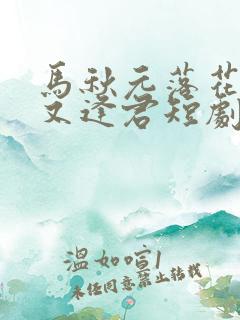 馬秋元落花
又逢君短劇
溫如喧1
未经同意禁止转载